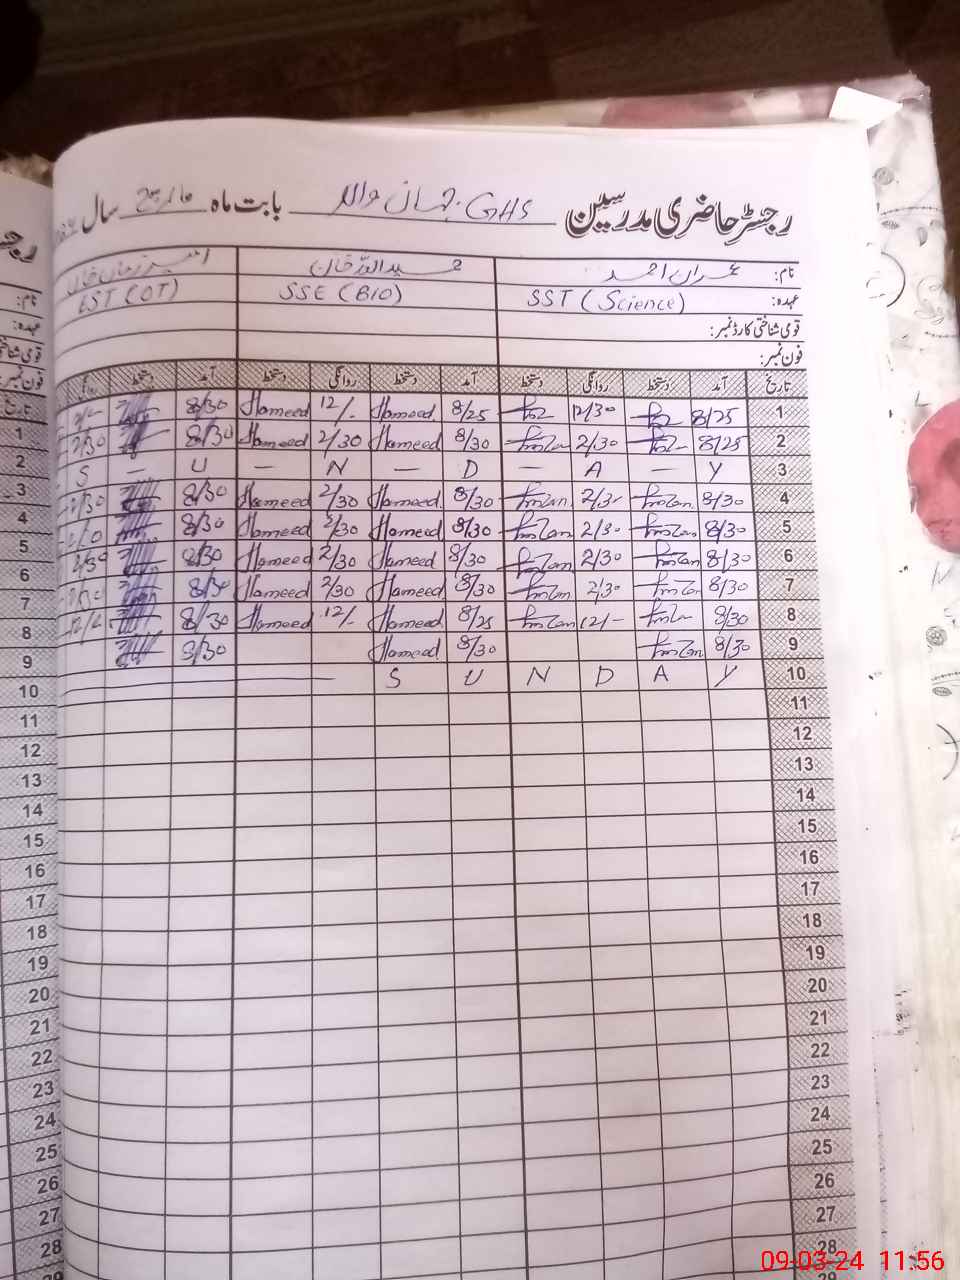 رجسٹر حاضری مدرسین GHS بابت ماہ مارچ سال
نام: عمران احمد حمید اللہ خان
عہدہ: SST (Science) SSE (BIO) EST (OT)
قومی شناختی کارڈ نمبر:
فون نمبر:
تاریخ آمد دستخط روانگی دستخط آمد دستخط روانگی دستخط آمد دستخط روانگی
1 8/25 12/30 8/25 Hameed 12/- Hameed 8/30
2 8/25 2/30 Imran 8/30 Hameed 2/30 Hameed 8/30 2/30
3 Y — A — D — N — U — S
4 8/30 Imran 2/30 Imran 8/30 Hameed 2/30 Hameed 8/30 2/30
5 8/30 Imran 2/30 Imran 8/30 Hameed 2/30 Hameed 8/30
6 8/30 Imran 2/30 Imran 8/30 Hameed 2/30 Hameed 8/30 2/30
7 8/30 Imran 2/30 Imran 8/30 Hameed 2/30 Hameed 8/30
8 8/30 Imran 12/- Imran 8/25 Hameed 12/- Hameed 8/30
9 8/30 Imran 8/30 Hameed 8/30
10 Y A D N U S
11
12
13
14
15
16
17
18
19
20
21
22
23
24
25
26
27
28
نام:
عہدہ:
فون نمبر:
تاریخ
1
2
3
4
5
6
7
8
9
10
11
12
13
14
15
16
17
18
19
20
21
22
23
24
25
26
27
28
29
09-03-24 11:56